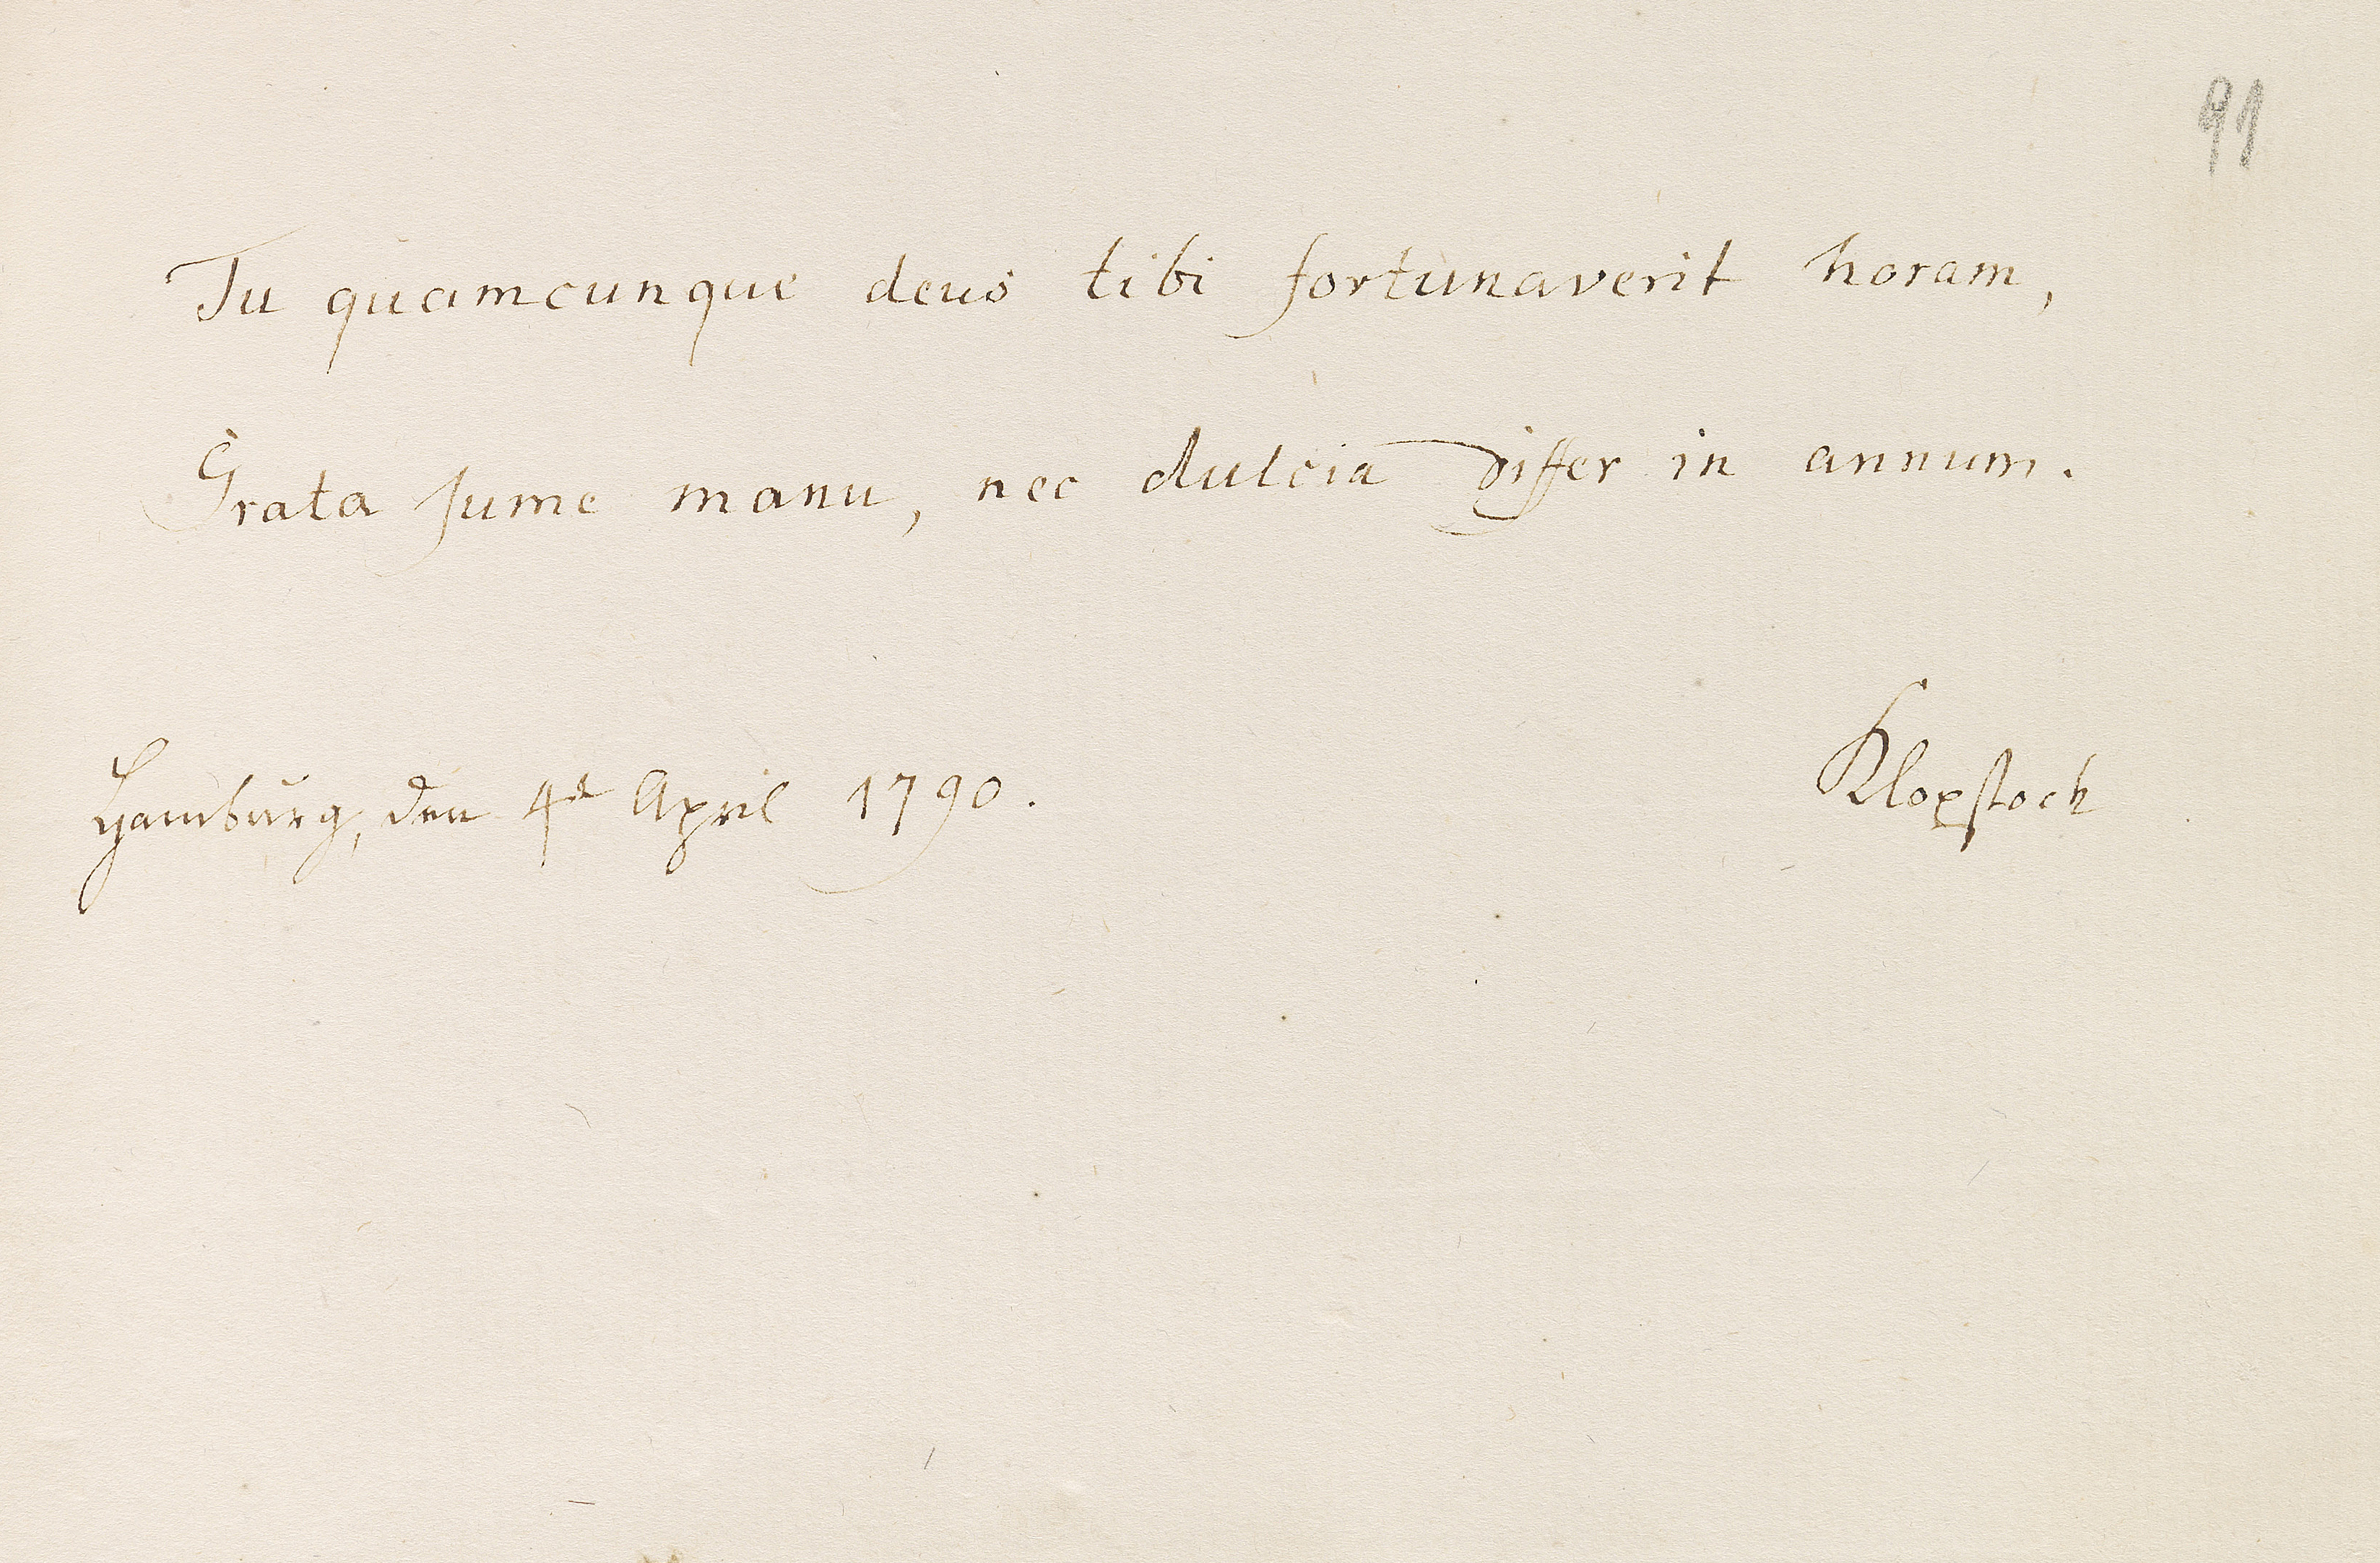 91
Tu quamcunque deus tibi fortunaverit horam,
Grata sume manu, nec dulcia differ in annum.
Hamburg, den 4t April 1790.
Klopstock